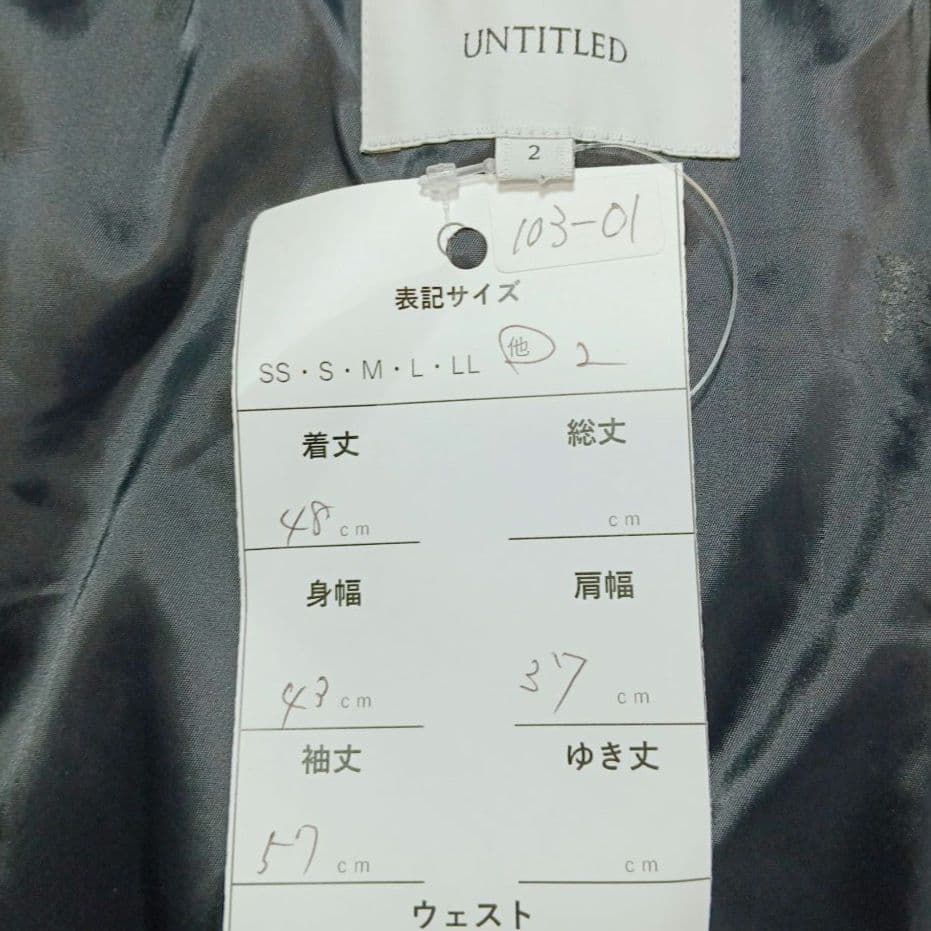 UNTITLED
2
103-01
表記サイズ
SS・S・M・L・LL 他 2
着丈 総丈
48cm cm
身幅 肩幅
43cm 37cm
袖丈 ゆき丈
57cm cm
ウェスト